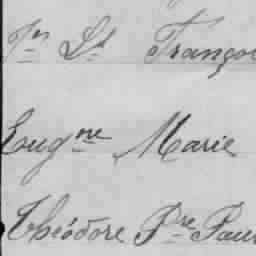 Jn Ls Franço
Eugne Marie
Théodore Pre Pau